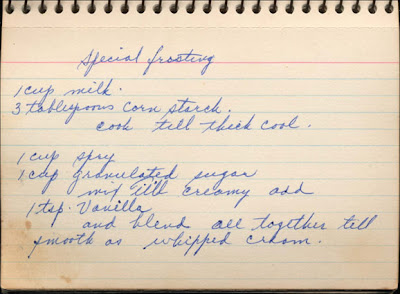 Special frosting
1 cup milk.
3 tablespoons corn starch.
cook till thick cool.
1 cup spry
1 cup granulated sugar
mix till creamy add
1 tsp. Vanilla
and blend all together till
smooth as whipped cream.